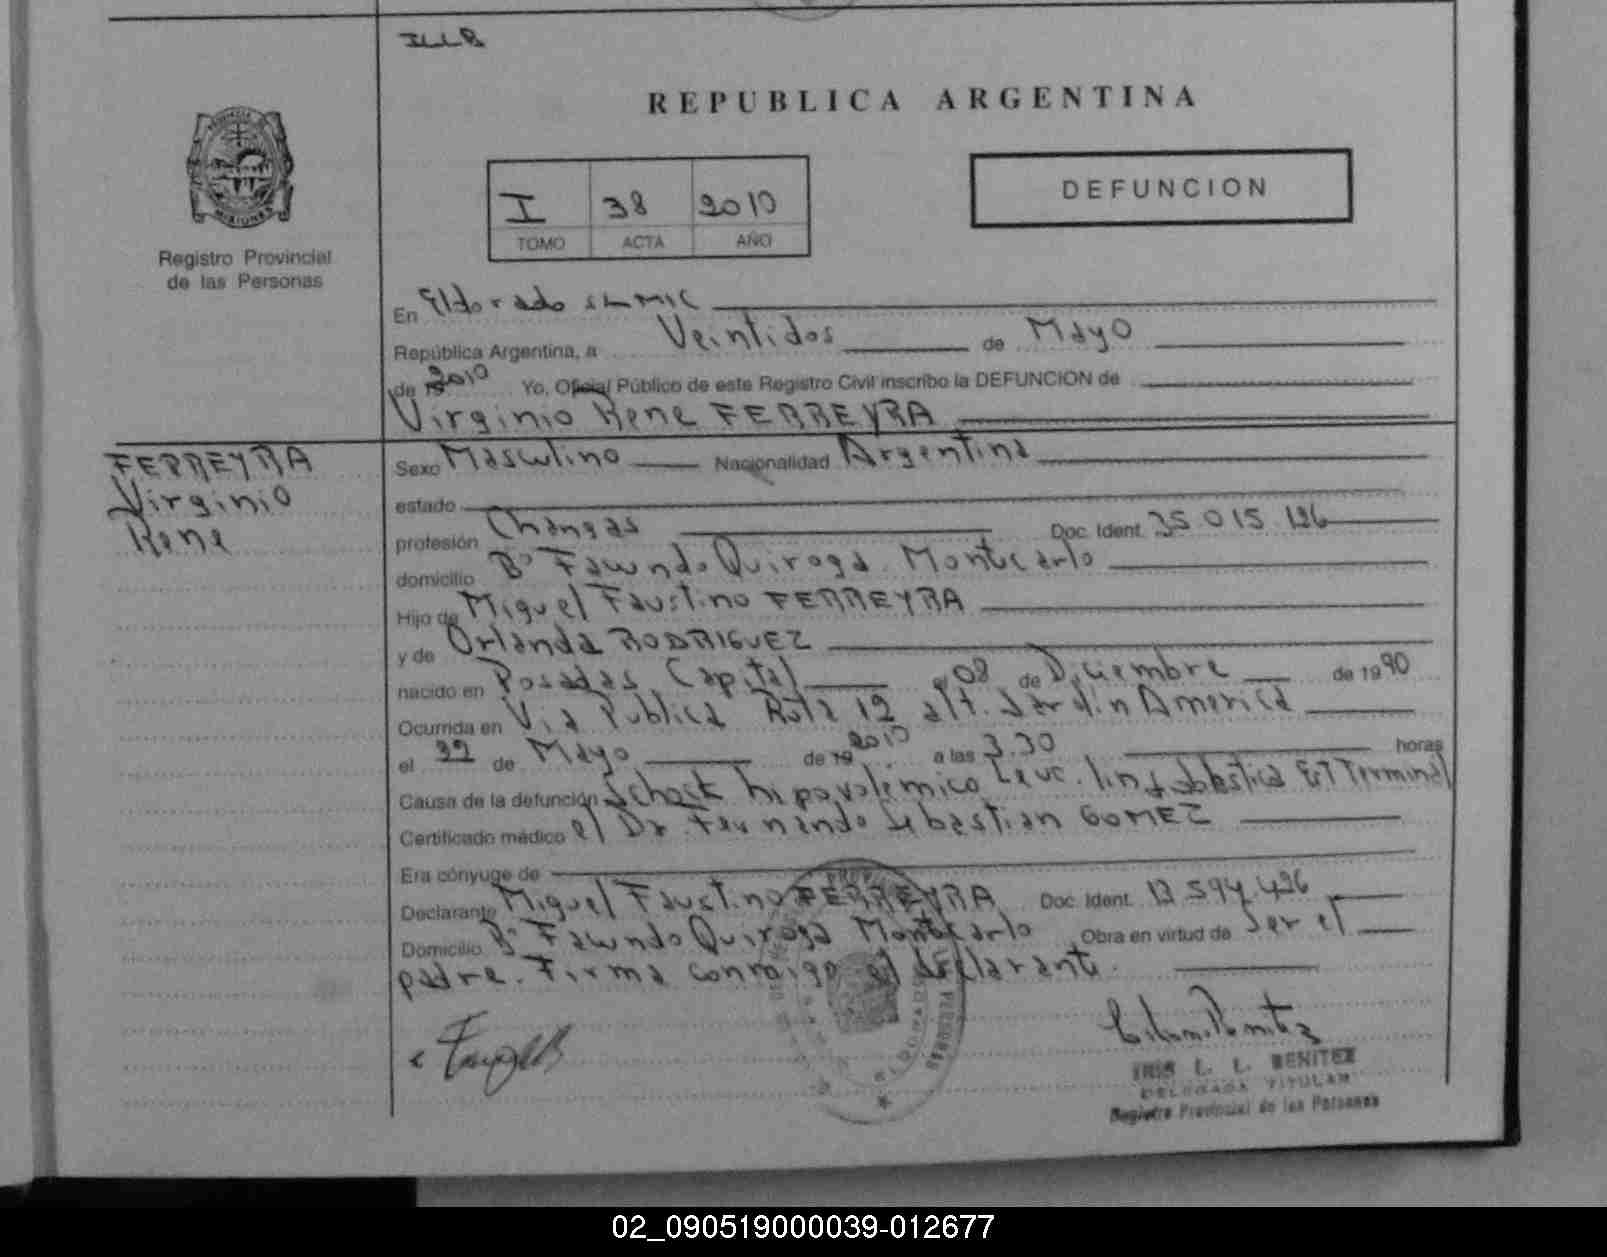 ILLB
REPUBLICA ARGENTINA
I 38 2010
TOMO ACTA AÑO
DEFUNCION
MISIONES
Registro Provincial
de las Personas
En Eldorado SLMIC
República Argentina, a Veintidos de Mayo
de 19 2010 Yo, Oficial Público de este Registro Civil inscribo la DEFUNCION de
Virginio Rene FERREYRA
FERREYRA
Virginio
Rene
Sexo Masculino Nacionalidad Argentina
estado
profesión Changas Doc. Ident. 35.015.196
domicilio Bº Facundo Quiroga Montecarlo
Hijo de Miguel Faustino FERREYRA
y de Orlanda RODRIGUEZ
nacido en Posadas Capital el 08 de Diciembre de 1990
Ocurrida en Via Publica Ruta 12 alt. Jardin America
el 22 de Mayo de 19 2010 a las 3.30 horas
Causa de la defunción Schock hipovolemico Leuc. linfoblastica Est Terminal
Certificado médico el Dr. Fernando Sebastian GOMEZ
Era cónyuge de
Declarante Miguel Faustino FERREYRA Doc. Ident. 13.594.496
Domicilio Bº Facundo Quiroga Montecarlo Obra en virtud de Ser el
padre. Firma conmigo el declarante.
IRIS L. L. BENITEZ
DELEGADA TITULAR
Registro Provincial de las Personas
02_090519000039-012677